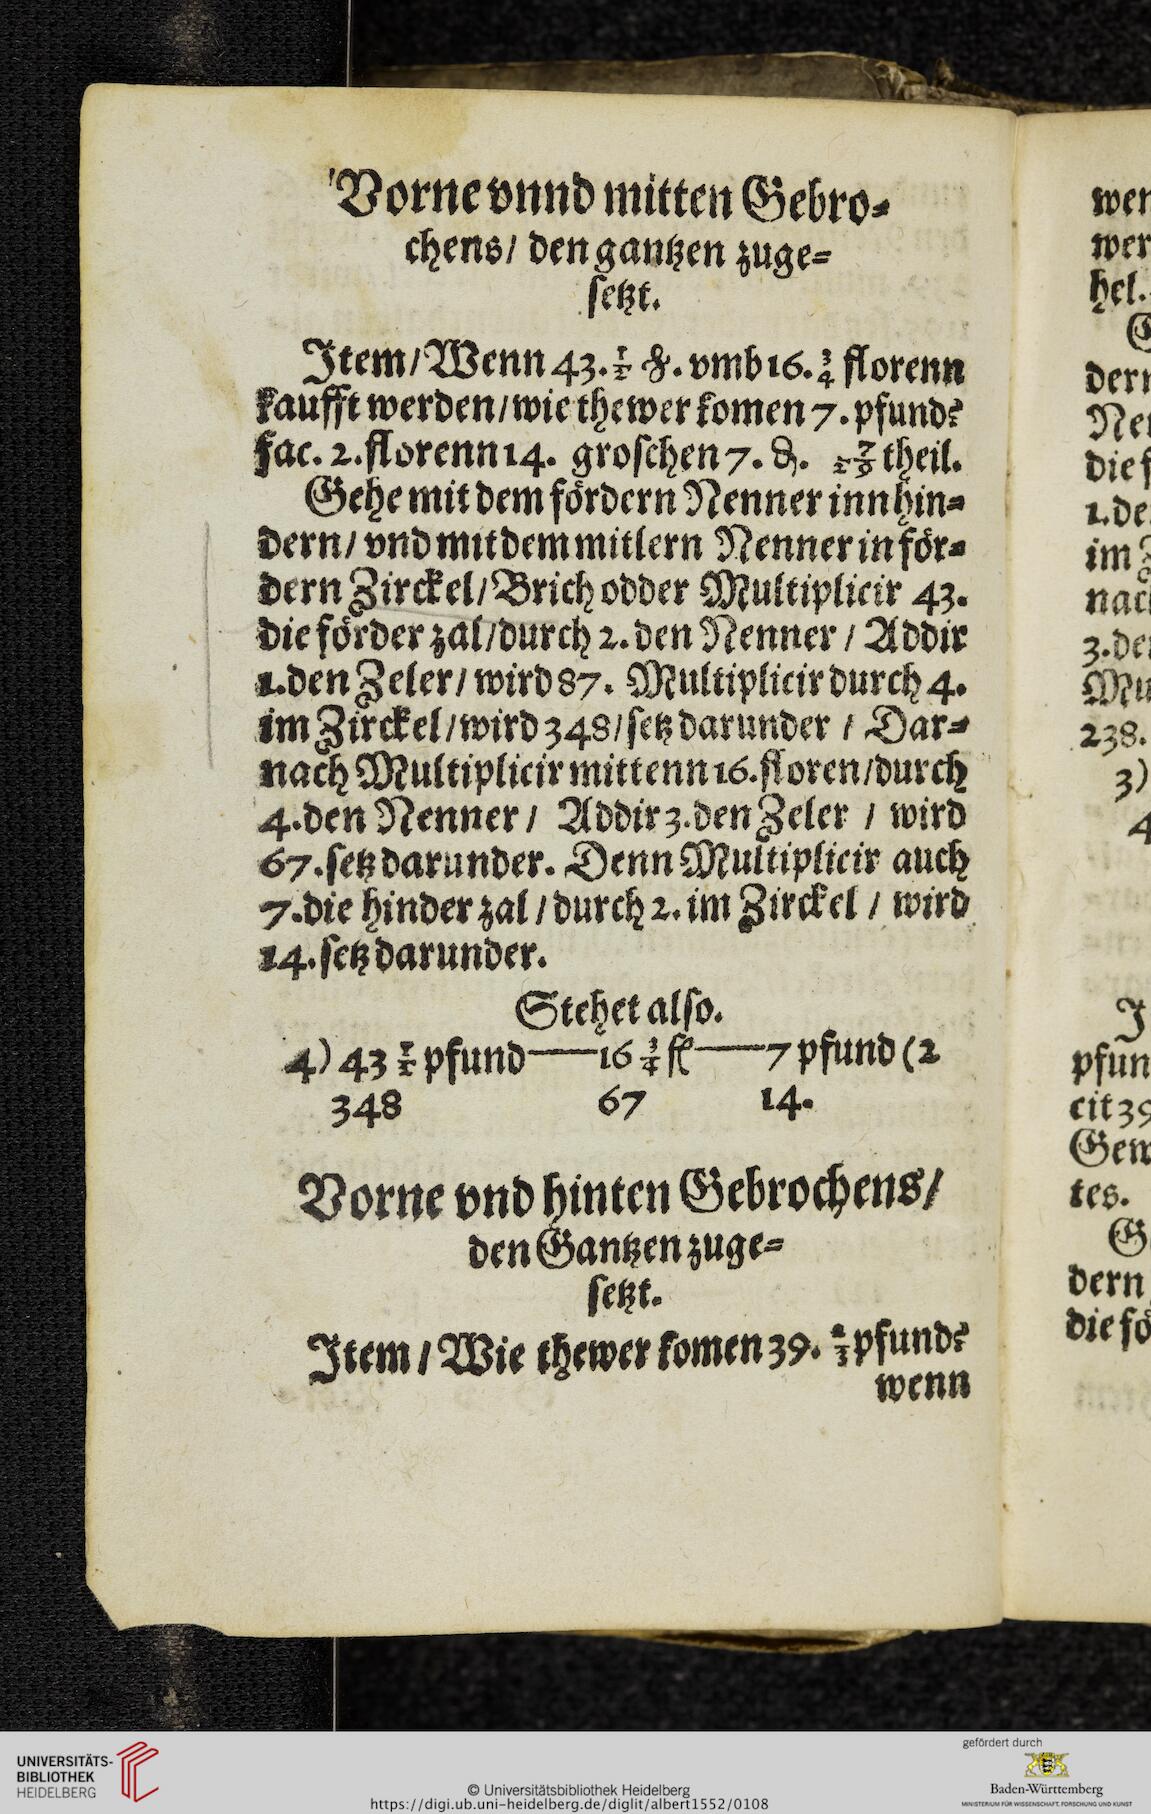 Vorne vnnd mitten Gebro=
chens/ den gantzen zuge=
setzt.
Item/ Wenn 43. 1/2 ℔. vmb 16. 3/4 florenn
kaufft werden/ wie thewer komen 7. pfund?
fac. 2. florenn 14. groschen 7. ₰.  theil.
Gehe mit dem fördern Nenner inn hin=
dern/ vnd mit dem mitlern Nenner in för=
dern Zirckel/ Brich odder Multiplicir 43.
die förder zal/ durch 2. den Nenner / Addir
1. den Zeler/ wird 87. Multiplicir durch 4.
im Zirckel/ wird 348/ setz darunder / Dar=
nach Multiplicir mittenn 16. floren/ durch
4. den Nenner / Addir 3. den Zeler / wird
67. setz darunder. Denn Multiplicir auch
7. die hinder zal / durch 2. im Zirckel / wird
14. setz darunder.
Stehet also.
4) 43 1/2 pfund——16 3/4 fl——7 pfund (2
348 67 14.
Vorne vnd hinten Gebrochens/
den Gantzen zuge=
setzt.
Item / Wie thewer komen 39. 2/3 pfund?
wenn
wer
hel.
dern
die f
1. de
im Z
nach
3. der
Mu
238.
3)
4
J
pfun
cit 39
Gew
tes.
G
dern
die fö
UNIVERSITÄTS-
BIBLIOTHEK
HEIDELBERG
© Universitätsbibliothek Heidelberg
https://digi.ub.uni-heidelberg.de/diglit/albert1552/0108
gefördert durch
Baden-Württemberg
MINISTERIUM FÜR WISSENSCHAFT, FORSCHUNG UND KUNST